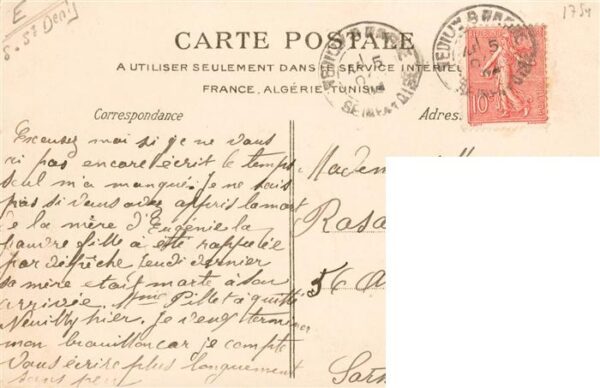 E
S. St Denis
1754
CARTE POSTALE
A UTILISER SEULEMENT DANS LE SERVICE INTÉRIE
FRANCE, ALGÉRIE, TUNISIE
Correspondance
Adres
10
NEUILLY
SEINE ET OISE
Excusez moi si je ne vous
ai pas encore écrit le temps
seul m'a manqué. Je ne sais
pas si vous avez appris la mort
de la mère d'Eugénie la
pauvre fille a été rappelée
par dépêche Jeudi dernier
sa mère était morte à son
arrivée. Mme Pillet a quitté
Neuilly hier. Je veux terminer
mon brouillon car je compte
Vous écrire plus longuement
sans peu
Madem
Rosa
56 A
Sars